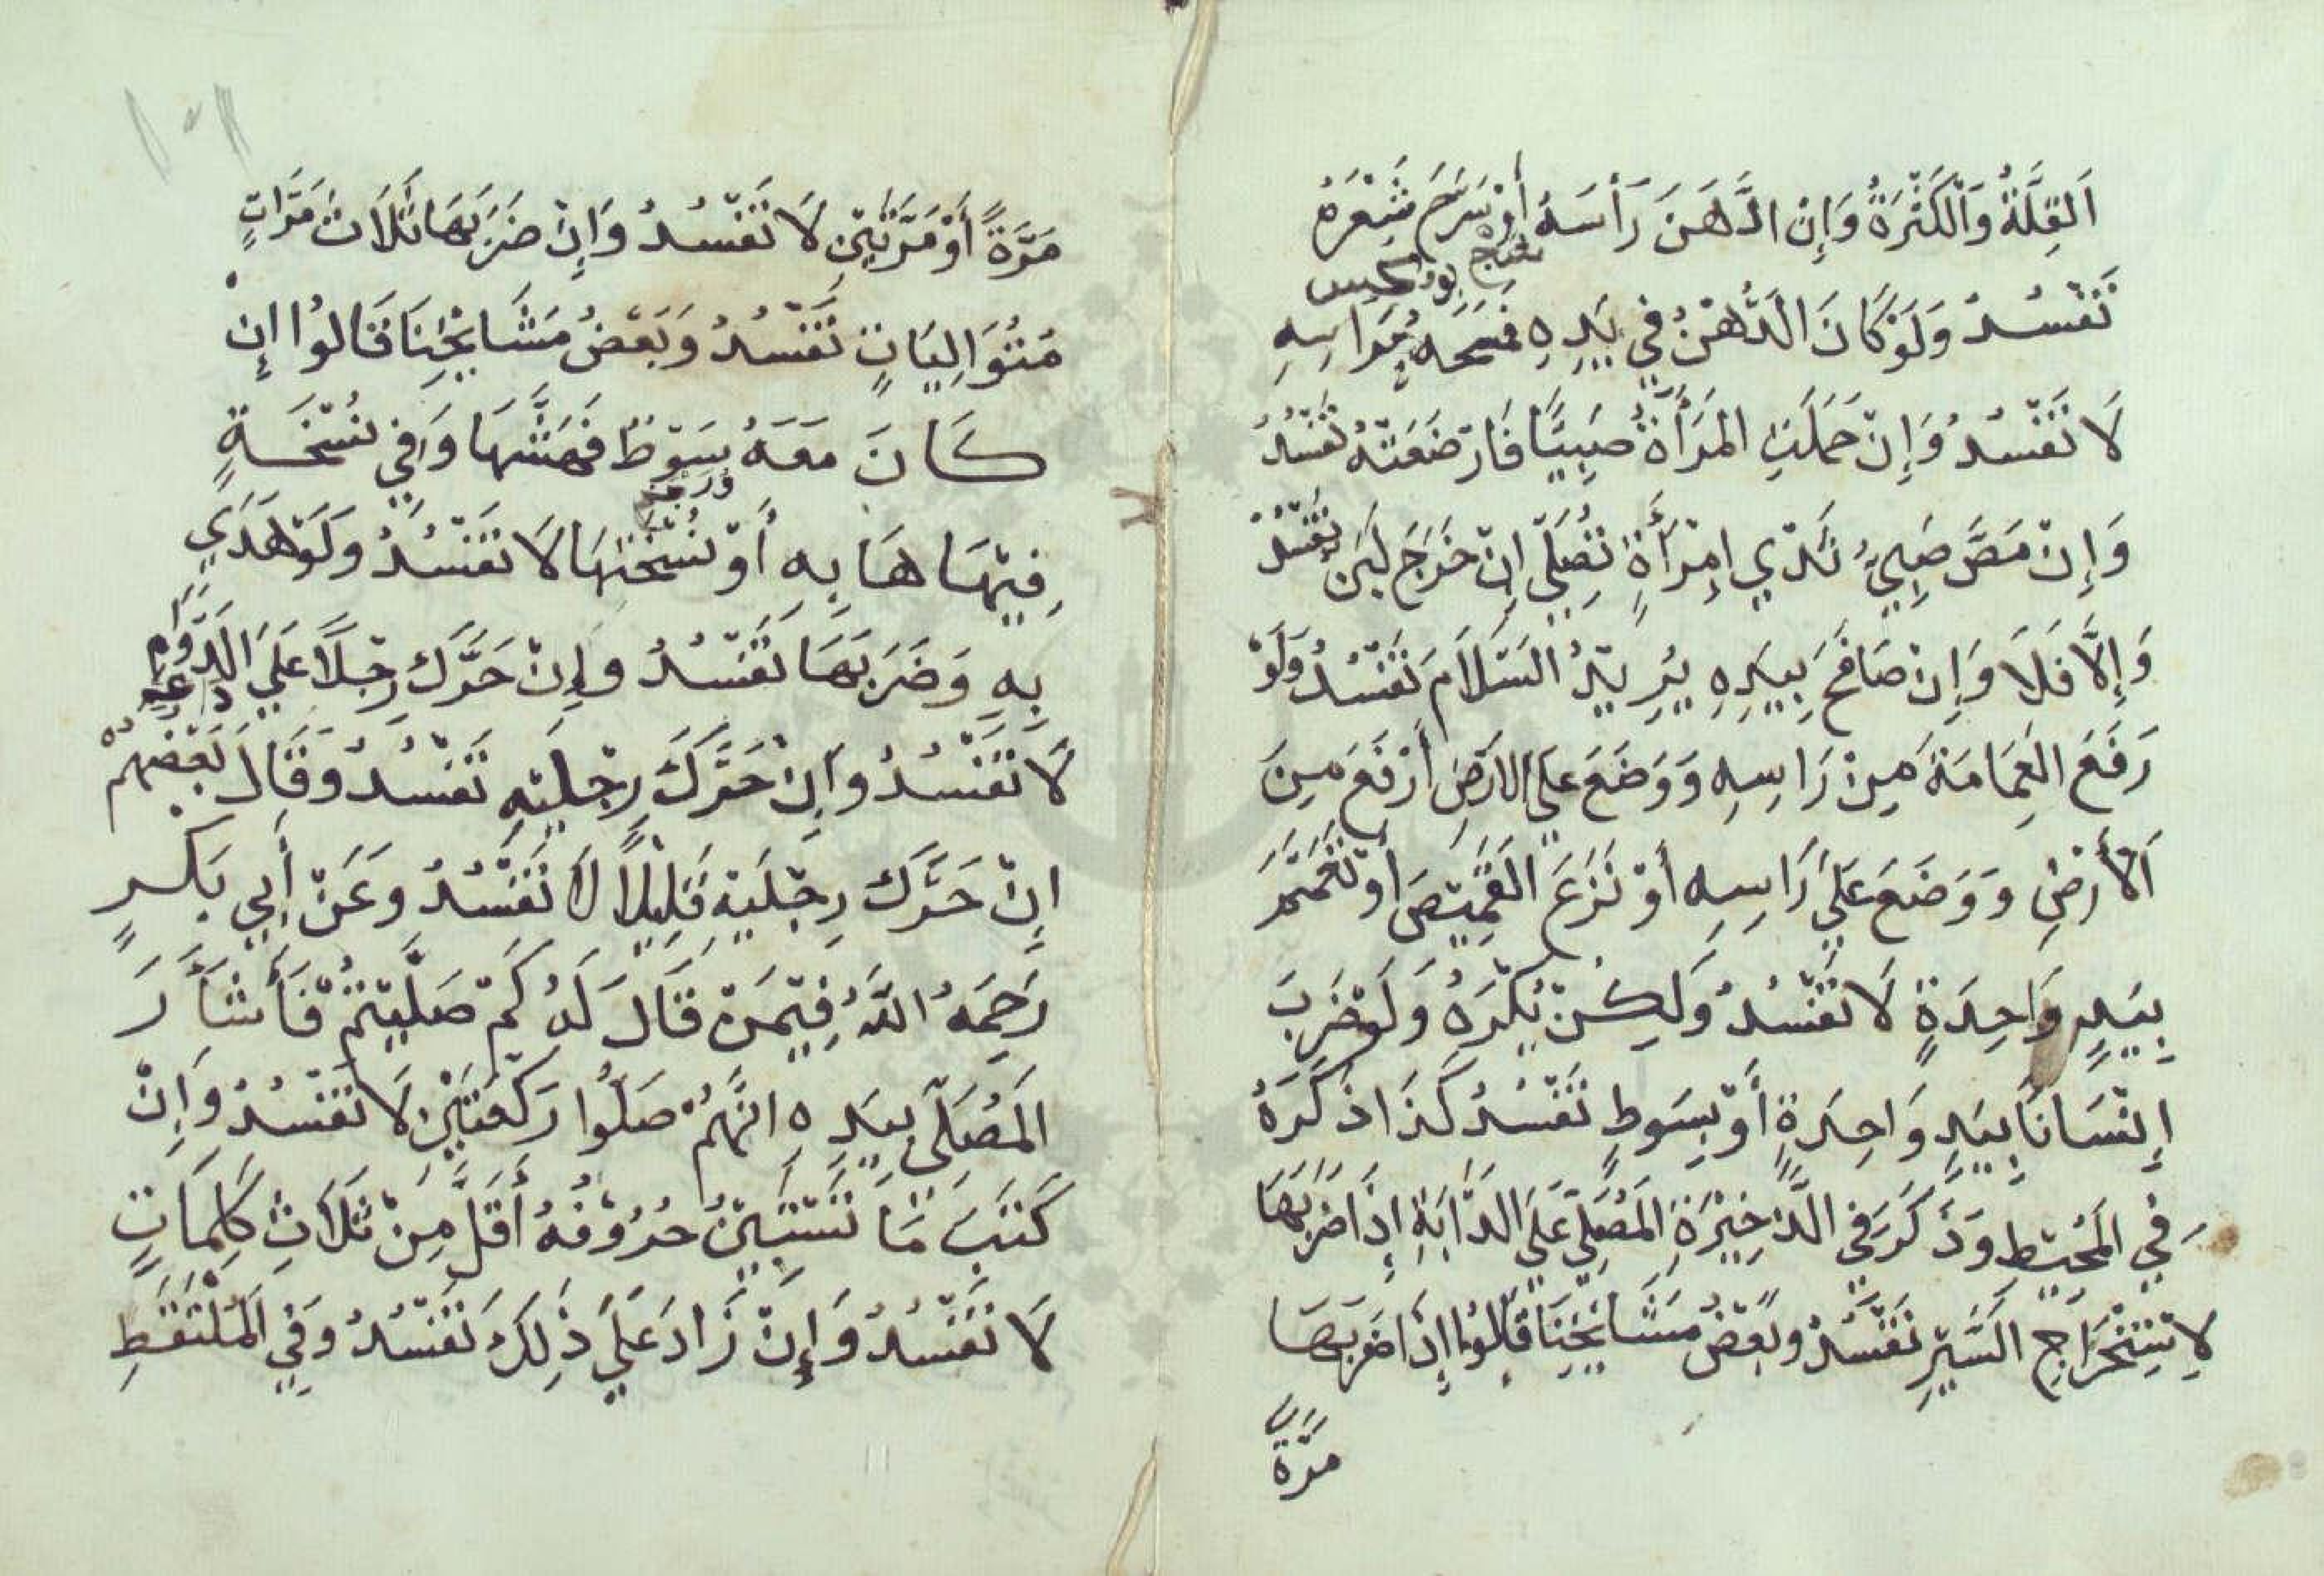 اَلْقِلَّةُ وَالْكَثْرَةُ وَإِنْ ادَّهَنَ رَأْسَهُ أَوْ سَرَحَ شَعْرَهُ
تَفْسُدُ وَلَوْ كَانَ الدُّهْنُ فِي يَدِهِ فَمَسَحَهُ بِرَاسِهِ
لَا تَفْسُدُ وَإِنْ حَمَلَتِ الْمَرْأَةُ صَبِيًّا فَارْضَعَتْهُ تَفْسُدُ
وَإِنْ مَصَّ صَبِيٌّ ثَدْيِ اِمْرَأَةٍ تُصَلِّي اِنْ خَرَجَ لَبَنٌ تَفْسُدُ
وَإِلَّا فَلَا وَإِنْ صَافَحَ بِيَدِهِ يُرِيْدُ السَّلَامَ تَفْسُدُ وَلَوْ
رَفَعَ الْعِمَامَةَ مِنْ رَاسِهِ وَوَضَعَ عَلَى الْارْضِ أَرْفَعَ مِنَ
اَلْأَرْضِ وَوَضَعَ عَلَي رَاسِهِ أَوْ نَزَعَ الْقَمِيْصَ أَوْ تَعَمَّمَ
بِيَدٍ وَاحِدَةٍ لَا تَفْسُدُ وَلَكِنْ يُكْرَهُ وَلَوْ ضَرَبَ
إِنْسَانًا بِيَدٍ وَاحِدَةٍ أَوْ بِسَوطٍ تَفْسُدُ كَذَا ذَكَرَهُ
فِي الْمُحِيْطِ وَذَكَرَ فِي الذَّخِيْرَةِ الْمُصَلِّي عَلَى الدَّابَةِ إِذَا ضَرَبَهَا
لِاسْتِخْرَاجِ السَّيْرِ تَفْسُدُ وَبَعْضُ مَشَايِخِنَا قَالُوا إِذَا ضَرَبَهَا
مَرَّةً
مَرَّةً أَوْ مَرَّتَيْنِ لَا تَفْسُدُ وَإِنْ ضَرَبَهَا ثَلَاثَ مَرَّاتٍ
مُتَوَالِيَاتٍ تَفْسُدُ وَبَعْضُ مَشَايِخِنَا قَالُوا إِنْ
كَانَ مَعَهُ سَوْطٌ فَهَشَّهَا وَفِي نُسْخَةٍ
فَهَيَّهَا بِهِ أَوْ نَخَسَهَا لَا تَفْسُدُ وَلَوْ هَدَي
بِهِ وَضَرَبَهَا تَفْسُدُ وَإِنْ حَرَّكَ رِجْلًا عَلَي الدَّوَامِ
لَا تَفْسُدُ وَاِنْ حَرَّكَ رِجْلَيْهِ تَفْسُدُ وَقَالَ بَعْضُهُمْ
اِنْ حَرَّكَ رِجْلَيْهِ قَلِيْلًا لَا تَفْسُدُ وَعَنْ أَبِي بَكْرٍ
رَحِمَهُ اللَّهُ فِيْمَنْ قَالَ لَهُ كَمْ صَلَّيْتُمْ فَأَشَارَ
الْمُصَلِّي بِيَدِهِ انَّهُمْ صَلُّوا رَكْعَتَيْنِ لَا تَفْسُدُ وَاِنْ
كَتَبَ مَا تَسْتَبِيْنُ حُرُوْفُهُ أَقَلَّ مِنْ ثَلَاثِ كَلِمَاتٍ
لَا تَفْسُدُ وَإِنْ زَادَ عَلَي ذٰلِكَ تَفْسُدُ وَفِي الْمُلْتَقَطِ